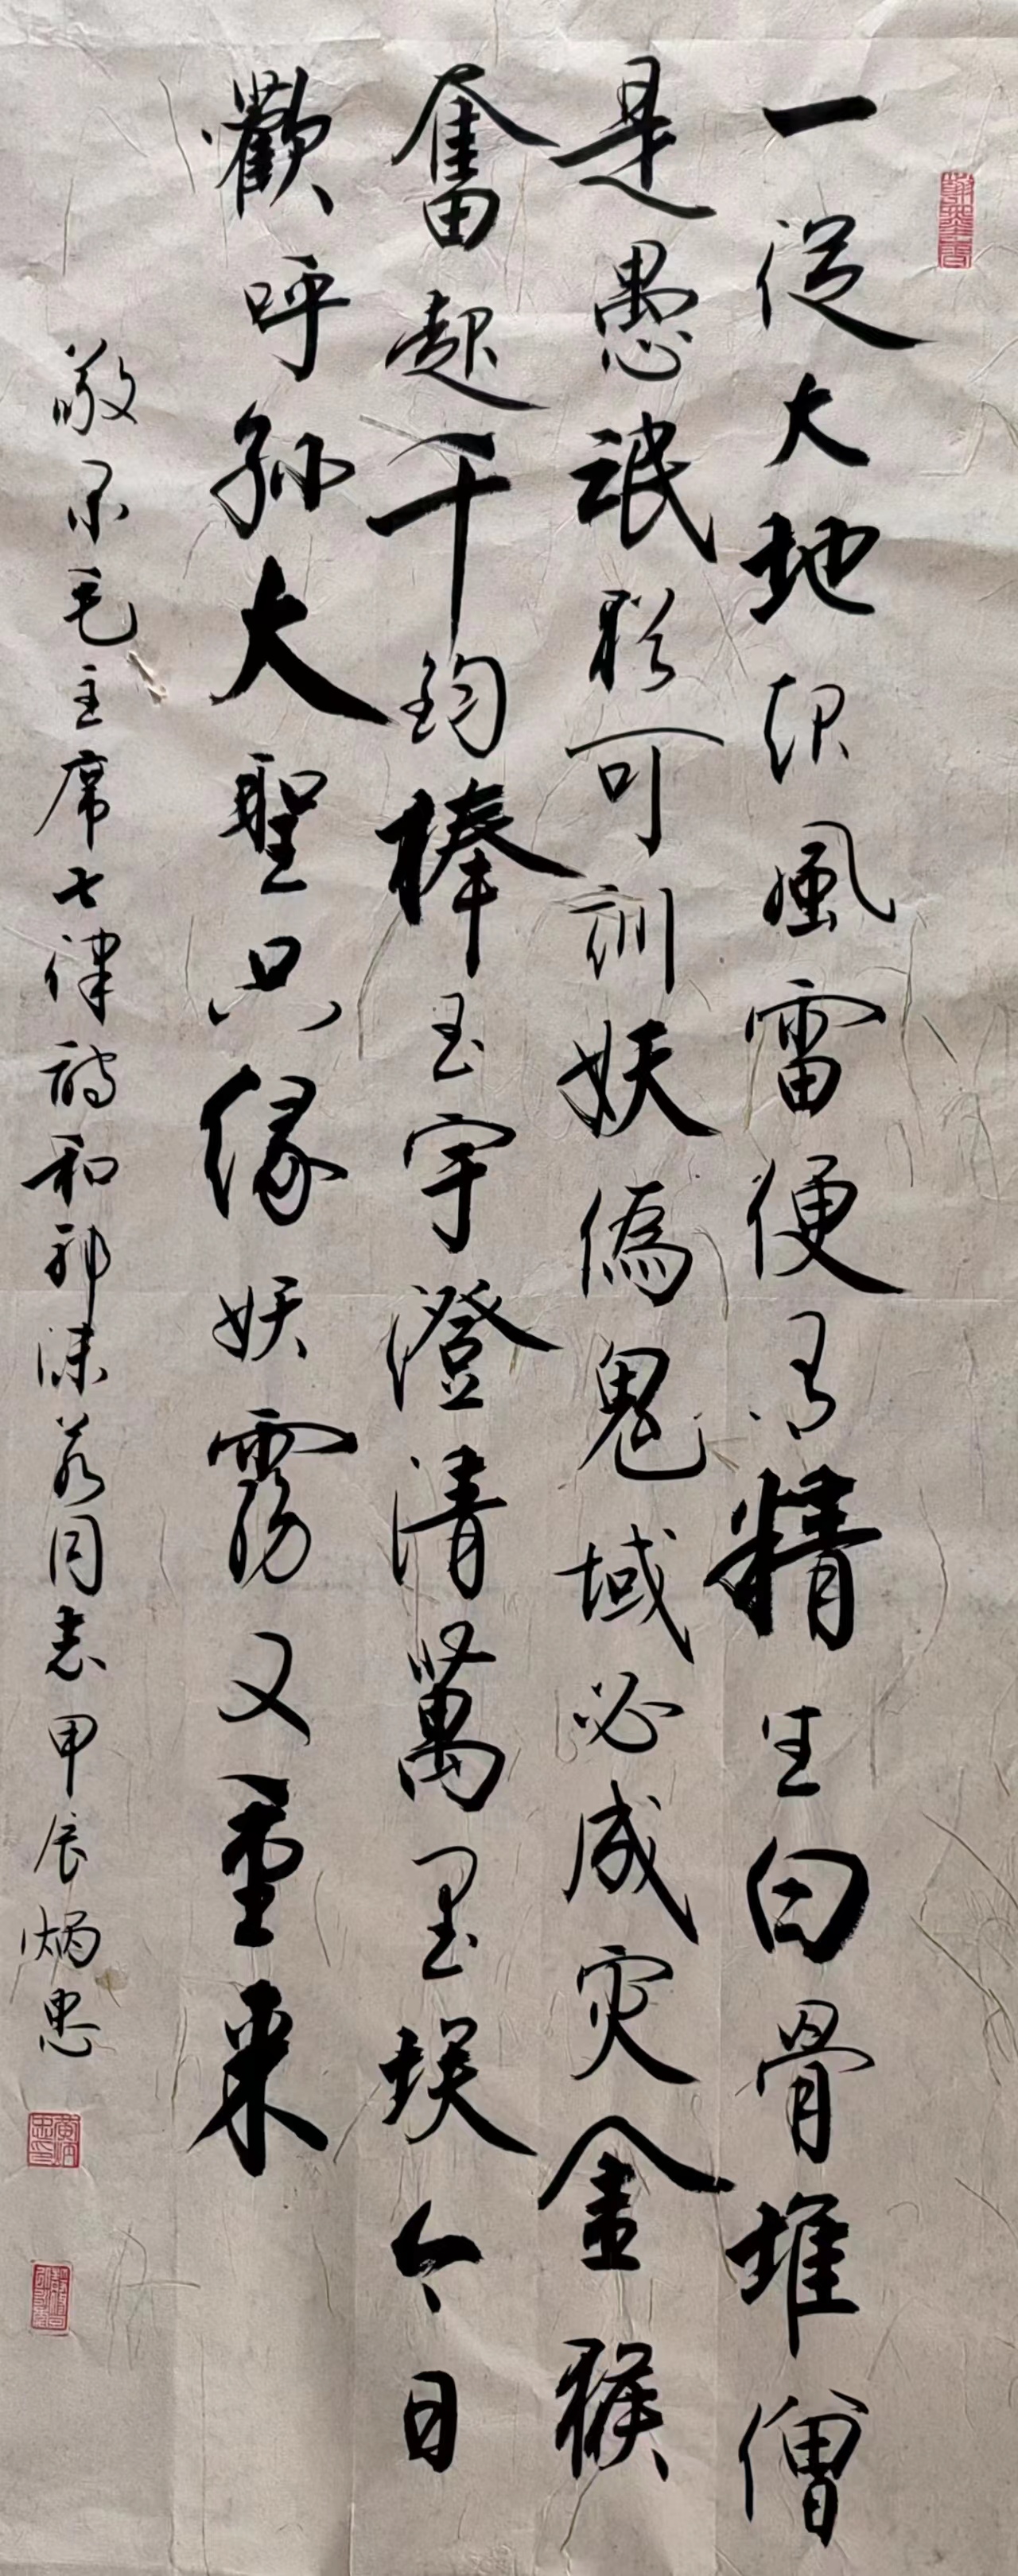 一從大地起風雷便有精生白骨堆僧
是愚氓猶可訓妖偽鬼域必成灾金猴
奮起千鈞棒玉宇澄清萬里埃今日
歡呼孫大聖只緣妖霧又重来
敬录毛主席七律詩和郭沫若同志甲辰炳忠